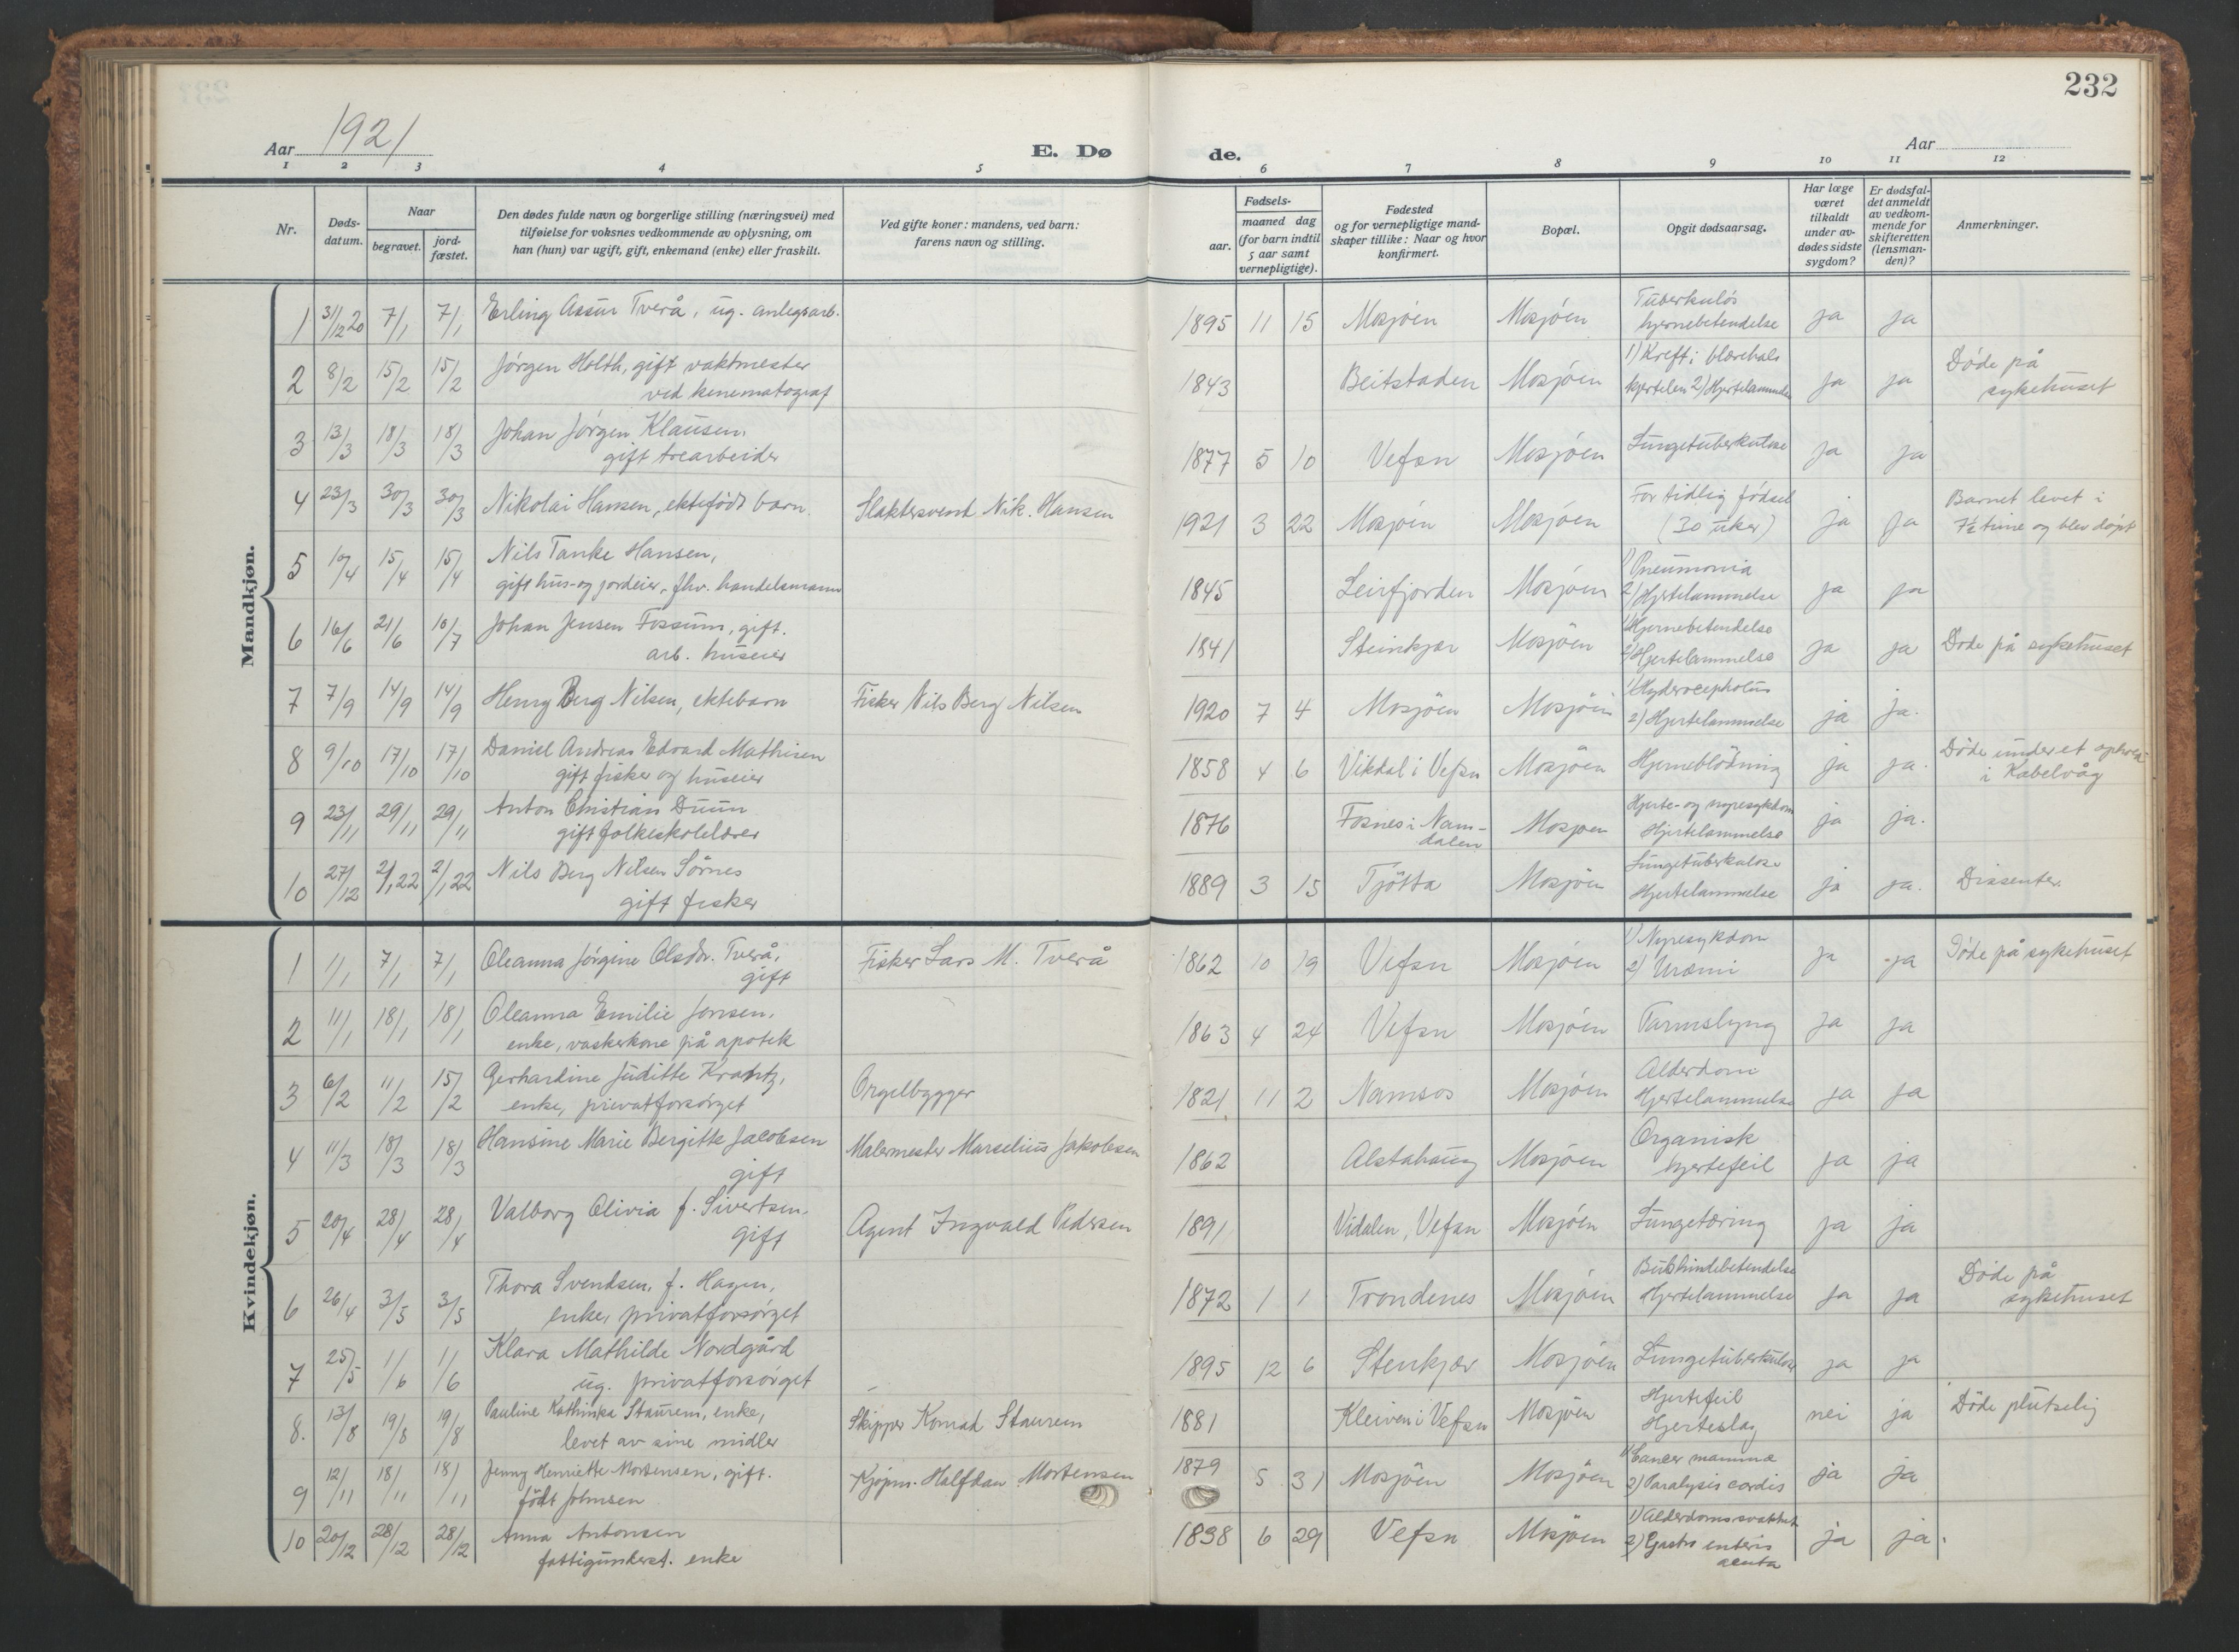 232
Aar 1921
E. Dø
de.
Aar
1 2 3 4 5 6 7 8 9 10 11 12
Nr.
Døds-
datum.
Naar
begravet.
jord-
fæstet.
Den dødes fulde navn og borgerlige stilling (næringsvei) med
tilføielse for voksnes vedkommende av oplysning, om
han (hun) var ugift, gift, enkemand (enke) eller fraskilt.
Ved gifte koner: mandens, ved barn:
farens navn og stilling.
Fødsels-
aar.
maaned dag
(for barn indtil
5 aar samt
vernepligtige).
Fødested
og for vernepligtige mand-
skaper tillike: Naar og hvor
konfirmert.
Bopæl.
Opgit dødsaarsag.
Har læge
været
tilkaldt
under av-
dødes sidste
sygdom?
Er dødsfal-
det anmeldt
av vedkom-
mende for
skifteretten
(lensman-
den)?
Anmerkninger.
Mandkjøn.
1 31/12 20 7/1 7/1 Erling Assur Tverå, ug. anlegsarb. 1895 11 15 Mosjöen Mosjöen Tuberkulös
hjernebetendelse ja ja
2 8/2 15/2 15/2 Jörgen Holth, gift vaktmester
ved kinematograf 1843 Beitstaden Mosjöen 1) Kreft i blærehals
kjertelen 2) Hjertelammelse ja ja Döde på
sykehuset
3 13/3 18/3 18/3 Johan Jörgen Klausen,
gift trearbeider 1877 5 10 Vefsn Mosjöen Lungetuberkulose ja ja
4 23/3 30/3 30/3 Nikolai Hansen, ektefödt barn. Slaktersvend Nik. Hansen 1921 3 22 Mosjöen Mosjöen For tidlig födsel
(30 uker) ja ja Barnet levet i
7½ time og blev döpt
5 10/4 15/4 15/4 Nils Tanke Hansen,
gift hus- og jordeier, fhv. handelsmann 1845 Leirfjorden Mosjöen 1) Pneumonia
2) Hjertelammelse ja ja
6 16/6 21/6 10/7 Johan Jensen Fossum, gift.
arb. huseier 1841 Steinkjær Mosjöen 1) Hjernebetendelse
2) Hjertelammelse ja ja Döde på sykehuset
7 7/9 14/9 14/9 Henry Berg Nilsen, ektebarn Fisker Nils Berg Nilsen 1920 7 4 Mosjöen Mosjöen 1) Hyderocepholus
2) Hjertelammelse ja ja.
8 9/10 17/10 17/10 Daniel Andreas Edvard Mathisen
gift fisker og huseier 1858 4 6 Vikdal i Vefsn Mosjöen Hjerneblödning ja ja. Döde under et ophold
i Kabelvåg
9 23/11 29/11 29/11 Anton Christian Duun
gift folkeskolelærer 1876 Fosnes i Nam-
dalen Mosjöen Hjerte- og nyresykdom
Hjertelammelse ja ja.
10 27/12 2/1 22 2/1 22 Nils Berg Nilsen Sörnes
gift fisker 1889 3 15 Tjötta Mosjöen Lungetuberkulose
Hjertelammelse ja ja. Dissenter.
Kvindekjøn.
1 1/1 7/1 7/1 Oleanna Jörgine Olsdtr. Tverå,
gift Fisker Lars M. Tverå 1862 10 19 Vefsn Mosjöen 1) Nyresykdom
2) Uræmi ja ja Döde på sykehuset
2 11/1 18/1 18/1 Oleanna Emilie Jensen,
enke, vaskerkone på apotek 1863 4 24 Vefsn Mosjöen Tarmslyng ja ja
3 6/2 11/2 15/2 Gerhardine Juditte Krantz,
enke, privatforsörget Orgelbygger 1821 11 2 Namsos Mosjöen Alderdom
Hjertelammelse ja ja
4 11/3 18/3 18/3 Hansine Marie Bergitte Jacobsen
gift Malermester Marselius Jakobsen 1862 Alstahaug Mosjöen Organisk
hjertefeil ja ja
5 20/4 28/4 28/4 Valborg Olivia f. Sivertsen,
gift Agent Ingvald Pedersen 1891 Vidalen, Vefsn Mosjöen Lungetæring ja ja
6 26/4 3/5 3/5 Thora Svendsen, f. Hagen,
enke, privatforsörget 1872 1 1 Trondenes Mosjöen Bukhindebetendelse
Hjertelammelse ja ja Döde på
sykehuset
7 25/5 1/6 1/6 Klara Mathilde Nordgård
ug. privatforsörget 1895 12 6 Stenkjær Mosjöen Lungetuberkulose ja ja
8. 13/8 19/8 19/8 Pauline Kathinka Staurem, enke,
levet av sine midler Skipper Konrad Staurem 1881 Kleiven i Vefsn Mosjöen Hjertefeil
Hjerteslag nei ja Döde plutselig
9 12/11 18/11 18/11 Jenny Henriette Mortensen, gift.
födt Johnsen Kjöpm. Halfdan Mortensen 1879 5 31 Mosjöen Mosjöen 1) Cancer mammæ
2) Paralysis cordis ja ja
10 20/12 28/12 28/12 Anna Antonsen
fattigunderst. enke 1838 6 29 Vefsn Mosjöen 1) Alderdomssvakhet
2) Gastro enteris
acuta ja ja.